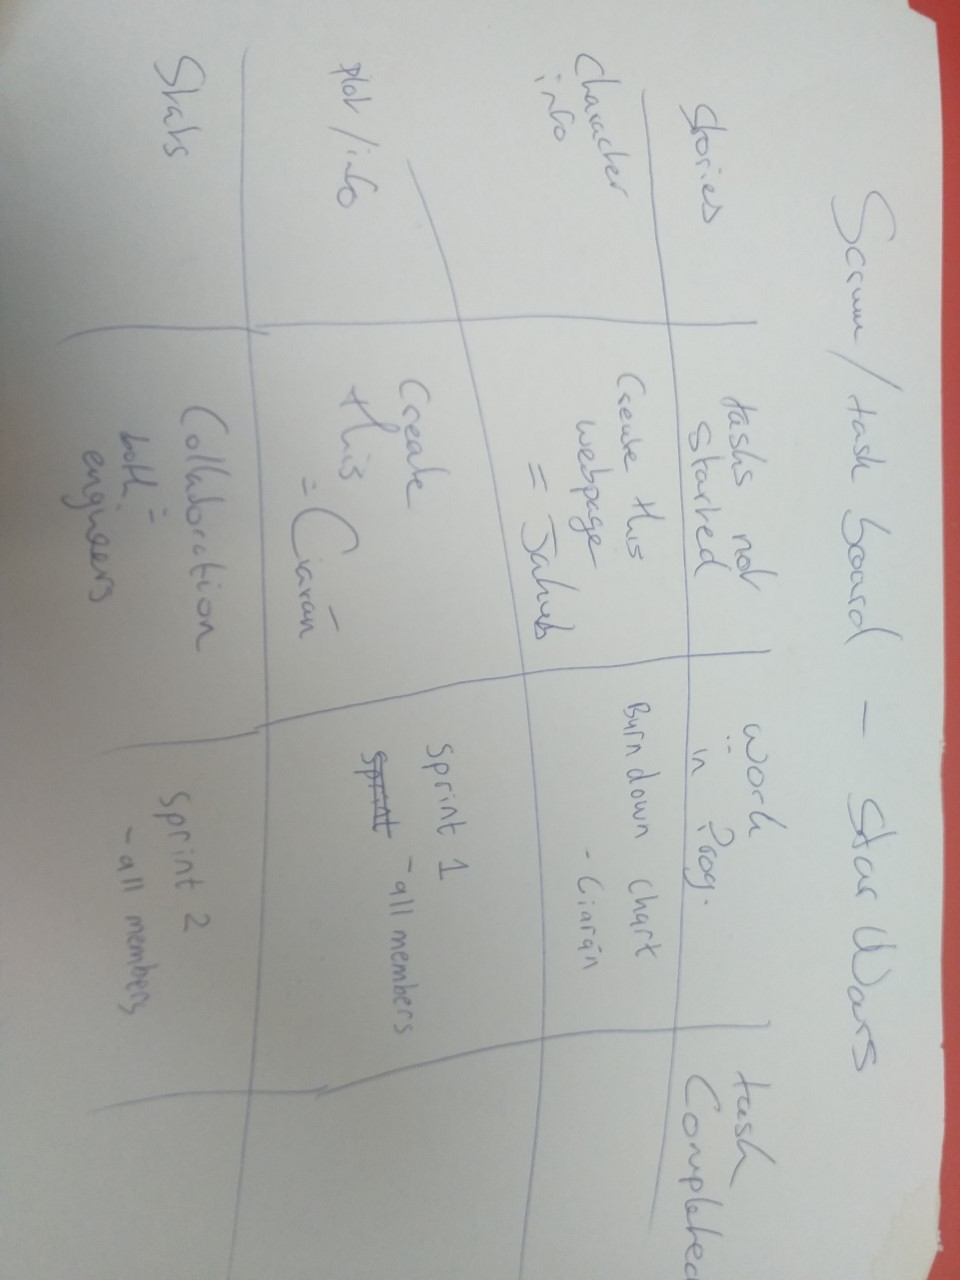 Scrum / task board - Star Wars
Stories
tasks not
started
work
in Prog.
task
Completed
Character
info
Create this
webpage
= Jakub
Burn down chart
- Ciarán
plot / info
Create
this
= Ciarán
Sprint 1
Sprint - all members
Stats
Collaboration
=
both
engineers
Sprint 2
- all members